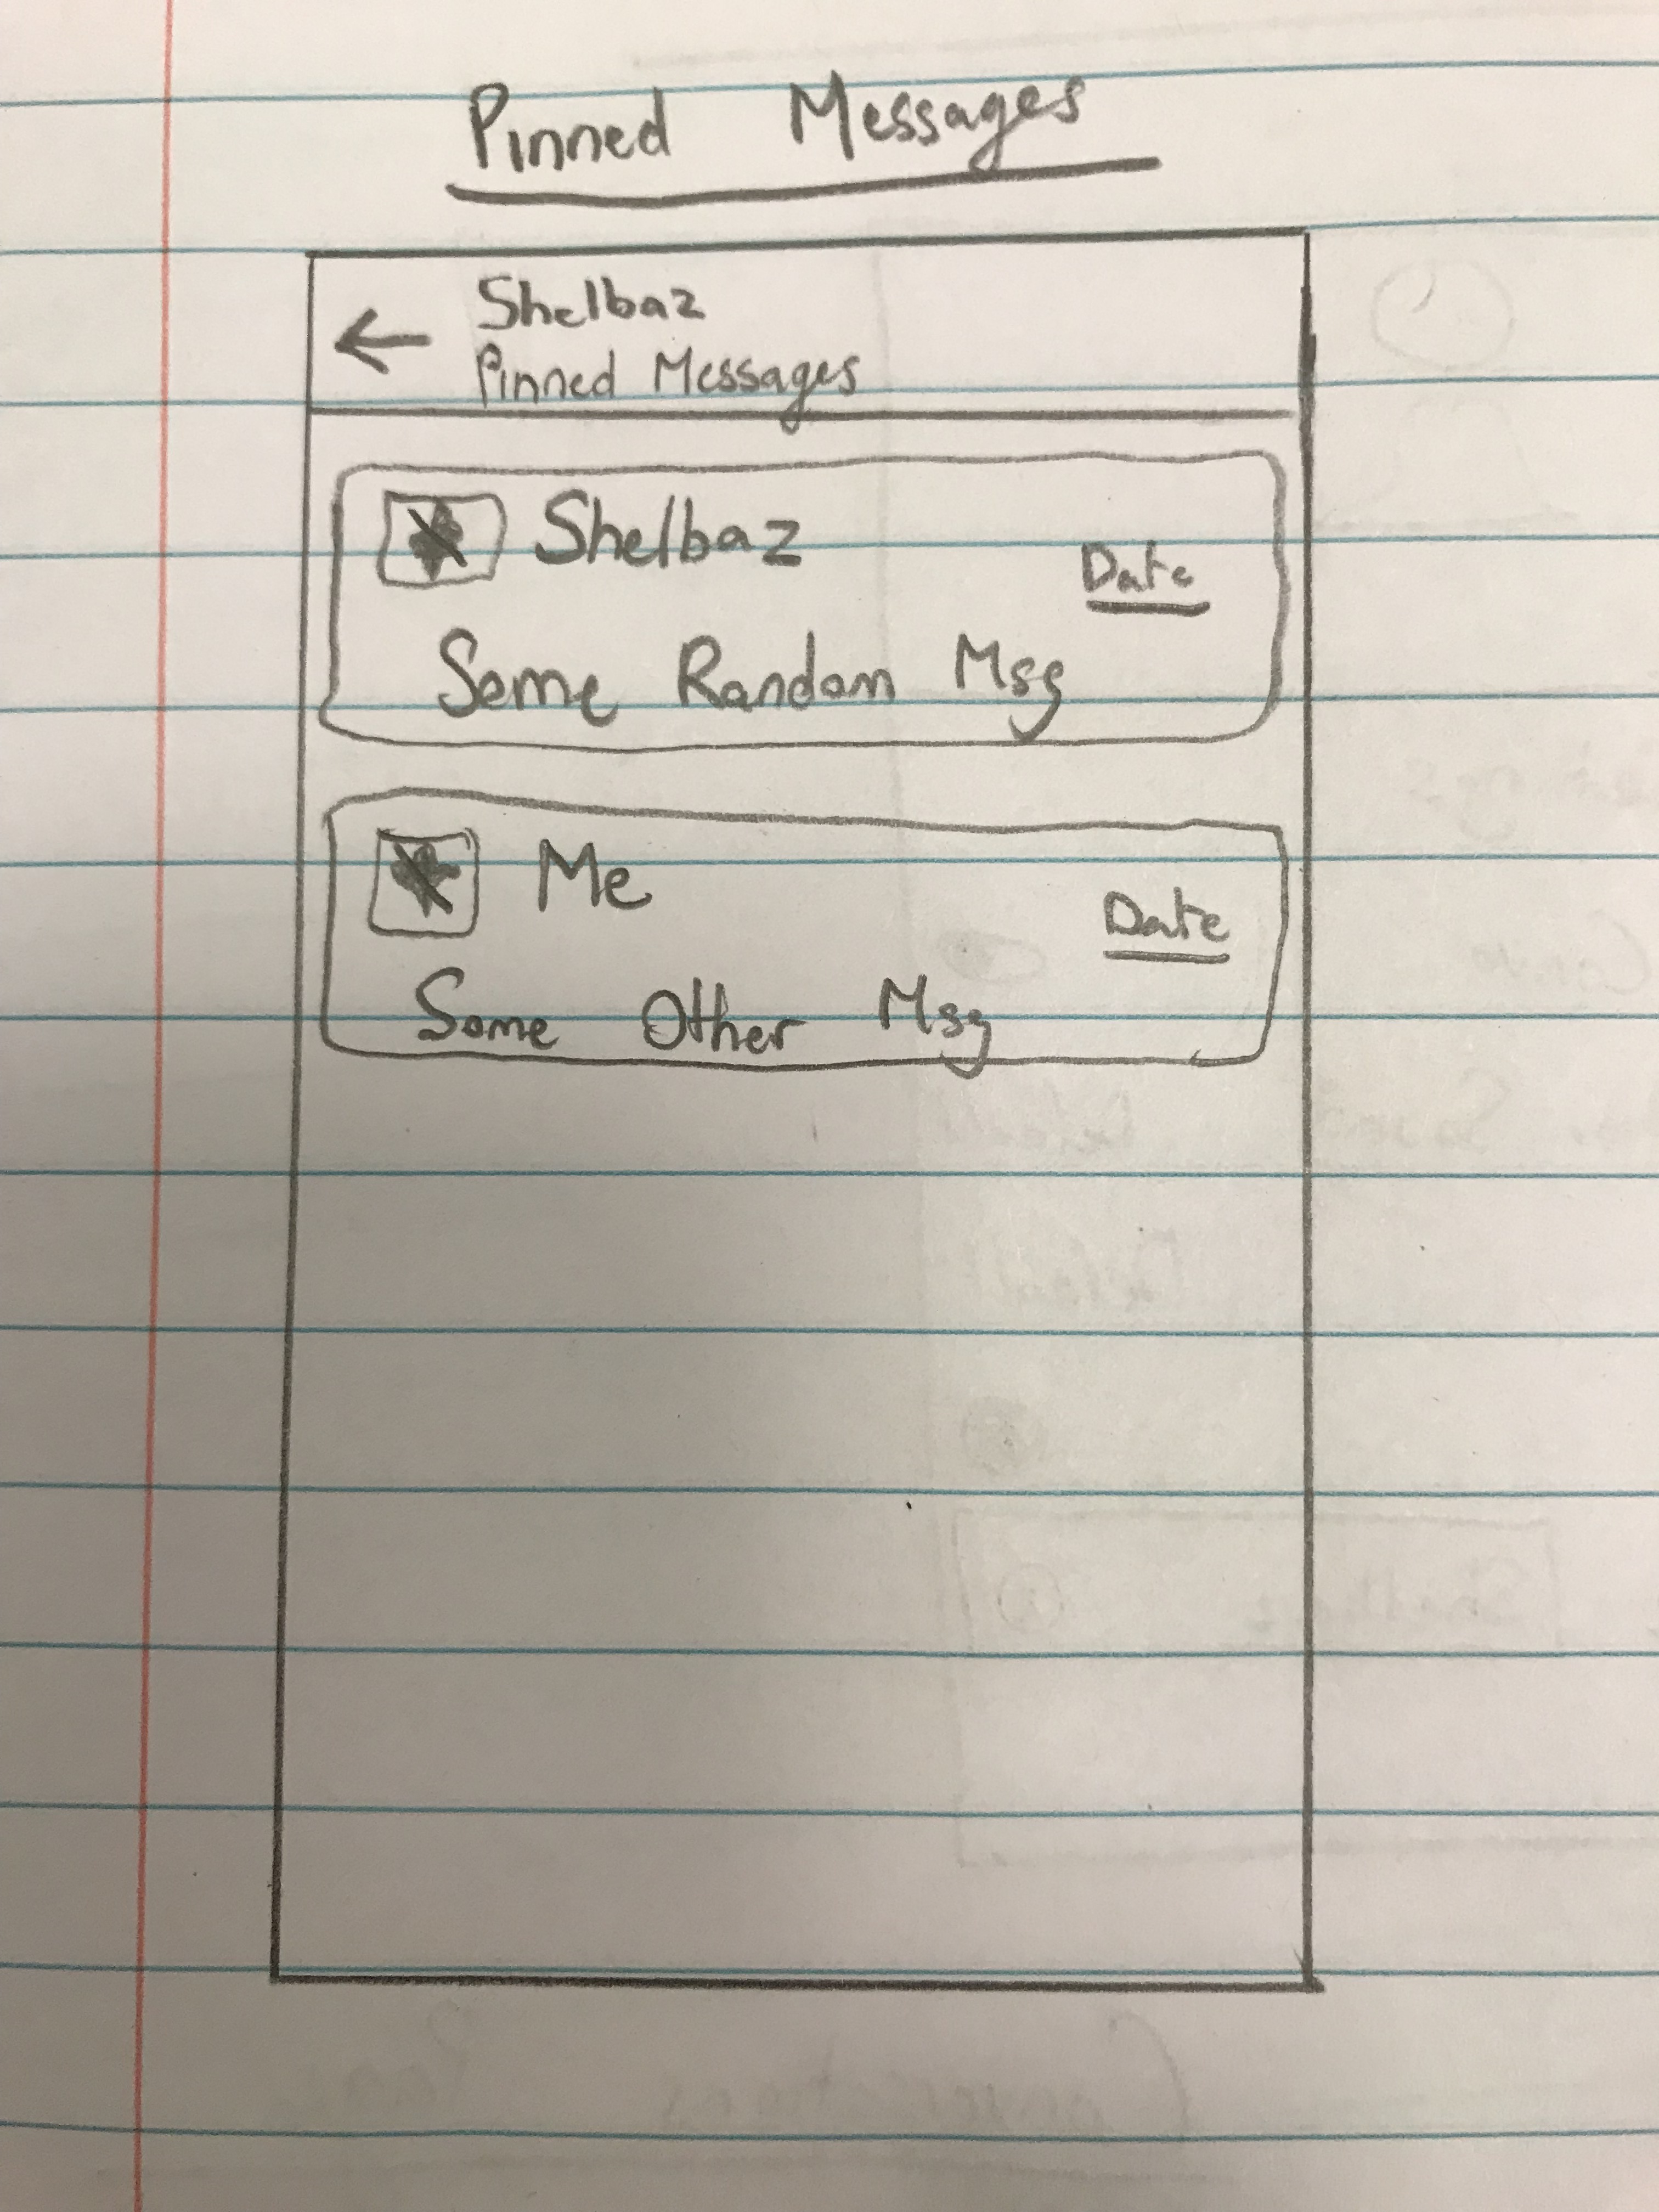 Pinned Messages
Shelbaz
Pinned Messages
Shelbaz
Date
Some Random Msg
Me
Date
Some Other Msg